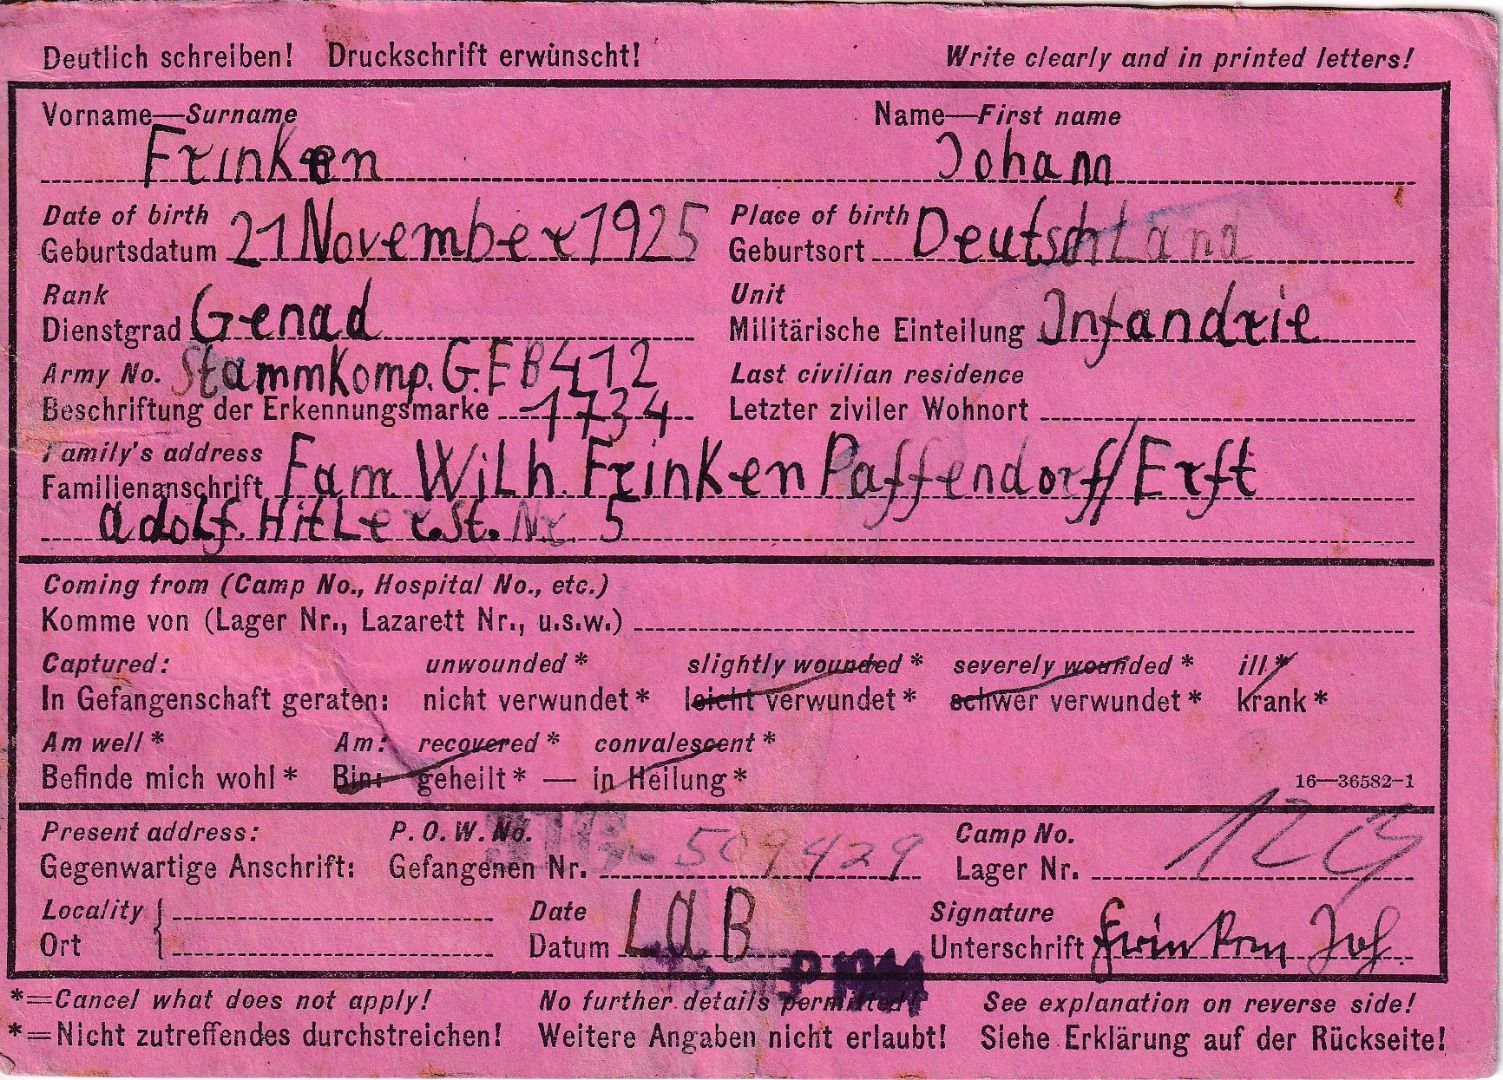 Deutlich schreiben! Druckschrift erwünscht! Write clearly and in printed letters!
Vorname—Surname Name—First name
Frinken Johann
Date of birth Place of birth
Geburtsdatum 21 November 1925 Geburtsort Deutschland
Rank Unit
Dienstgrad Genad Militärische Einteilung Infandrie
Army No. Stammkomp. G.E B 412 Last civilian residence
Beschriftung der Erkennungsmarke 1734 Letzter ziviler Wohnort
Family's address
Familienanschrift Fam Wilh. Frinken Paffendorf/Erft
Adolf. Hitler.St. Nr. 5
Coming from (Camp No., Hospital No., etc.)
Komme von (Lager Nr., Lazarett Nr., u.s.w.)
Captured: unwounded * slightly wounded * severely wounded * ill *
In Gefangenschaft geraten: nicht verwundet * leicht verwundet * schwer verwundet * krank *
Am well * Am: recovered * convalescent *
Befinde mich wohl * Bin: geheilt * — in Heilung *
16—36582-1
Present address: P. O. W. No. Camp No.
Gegenwartige Anschrift: Gefangenen Nr. 509429 Lager Nr.
Locality Date Signature
Ort Datum LaB Unterschrift Frinken Joh.
1944
*=Cancel what does not apply! No further details permitted! See explanation on reverse side!
*=Nicht zutreffendes durchstreichen! Weitere Angaben nicht erlaubt! Siehe Erklärung auf der Rückseite!